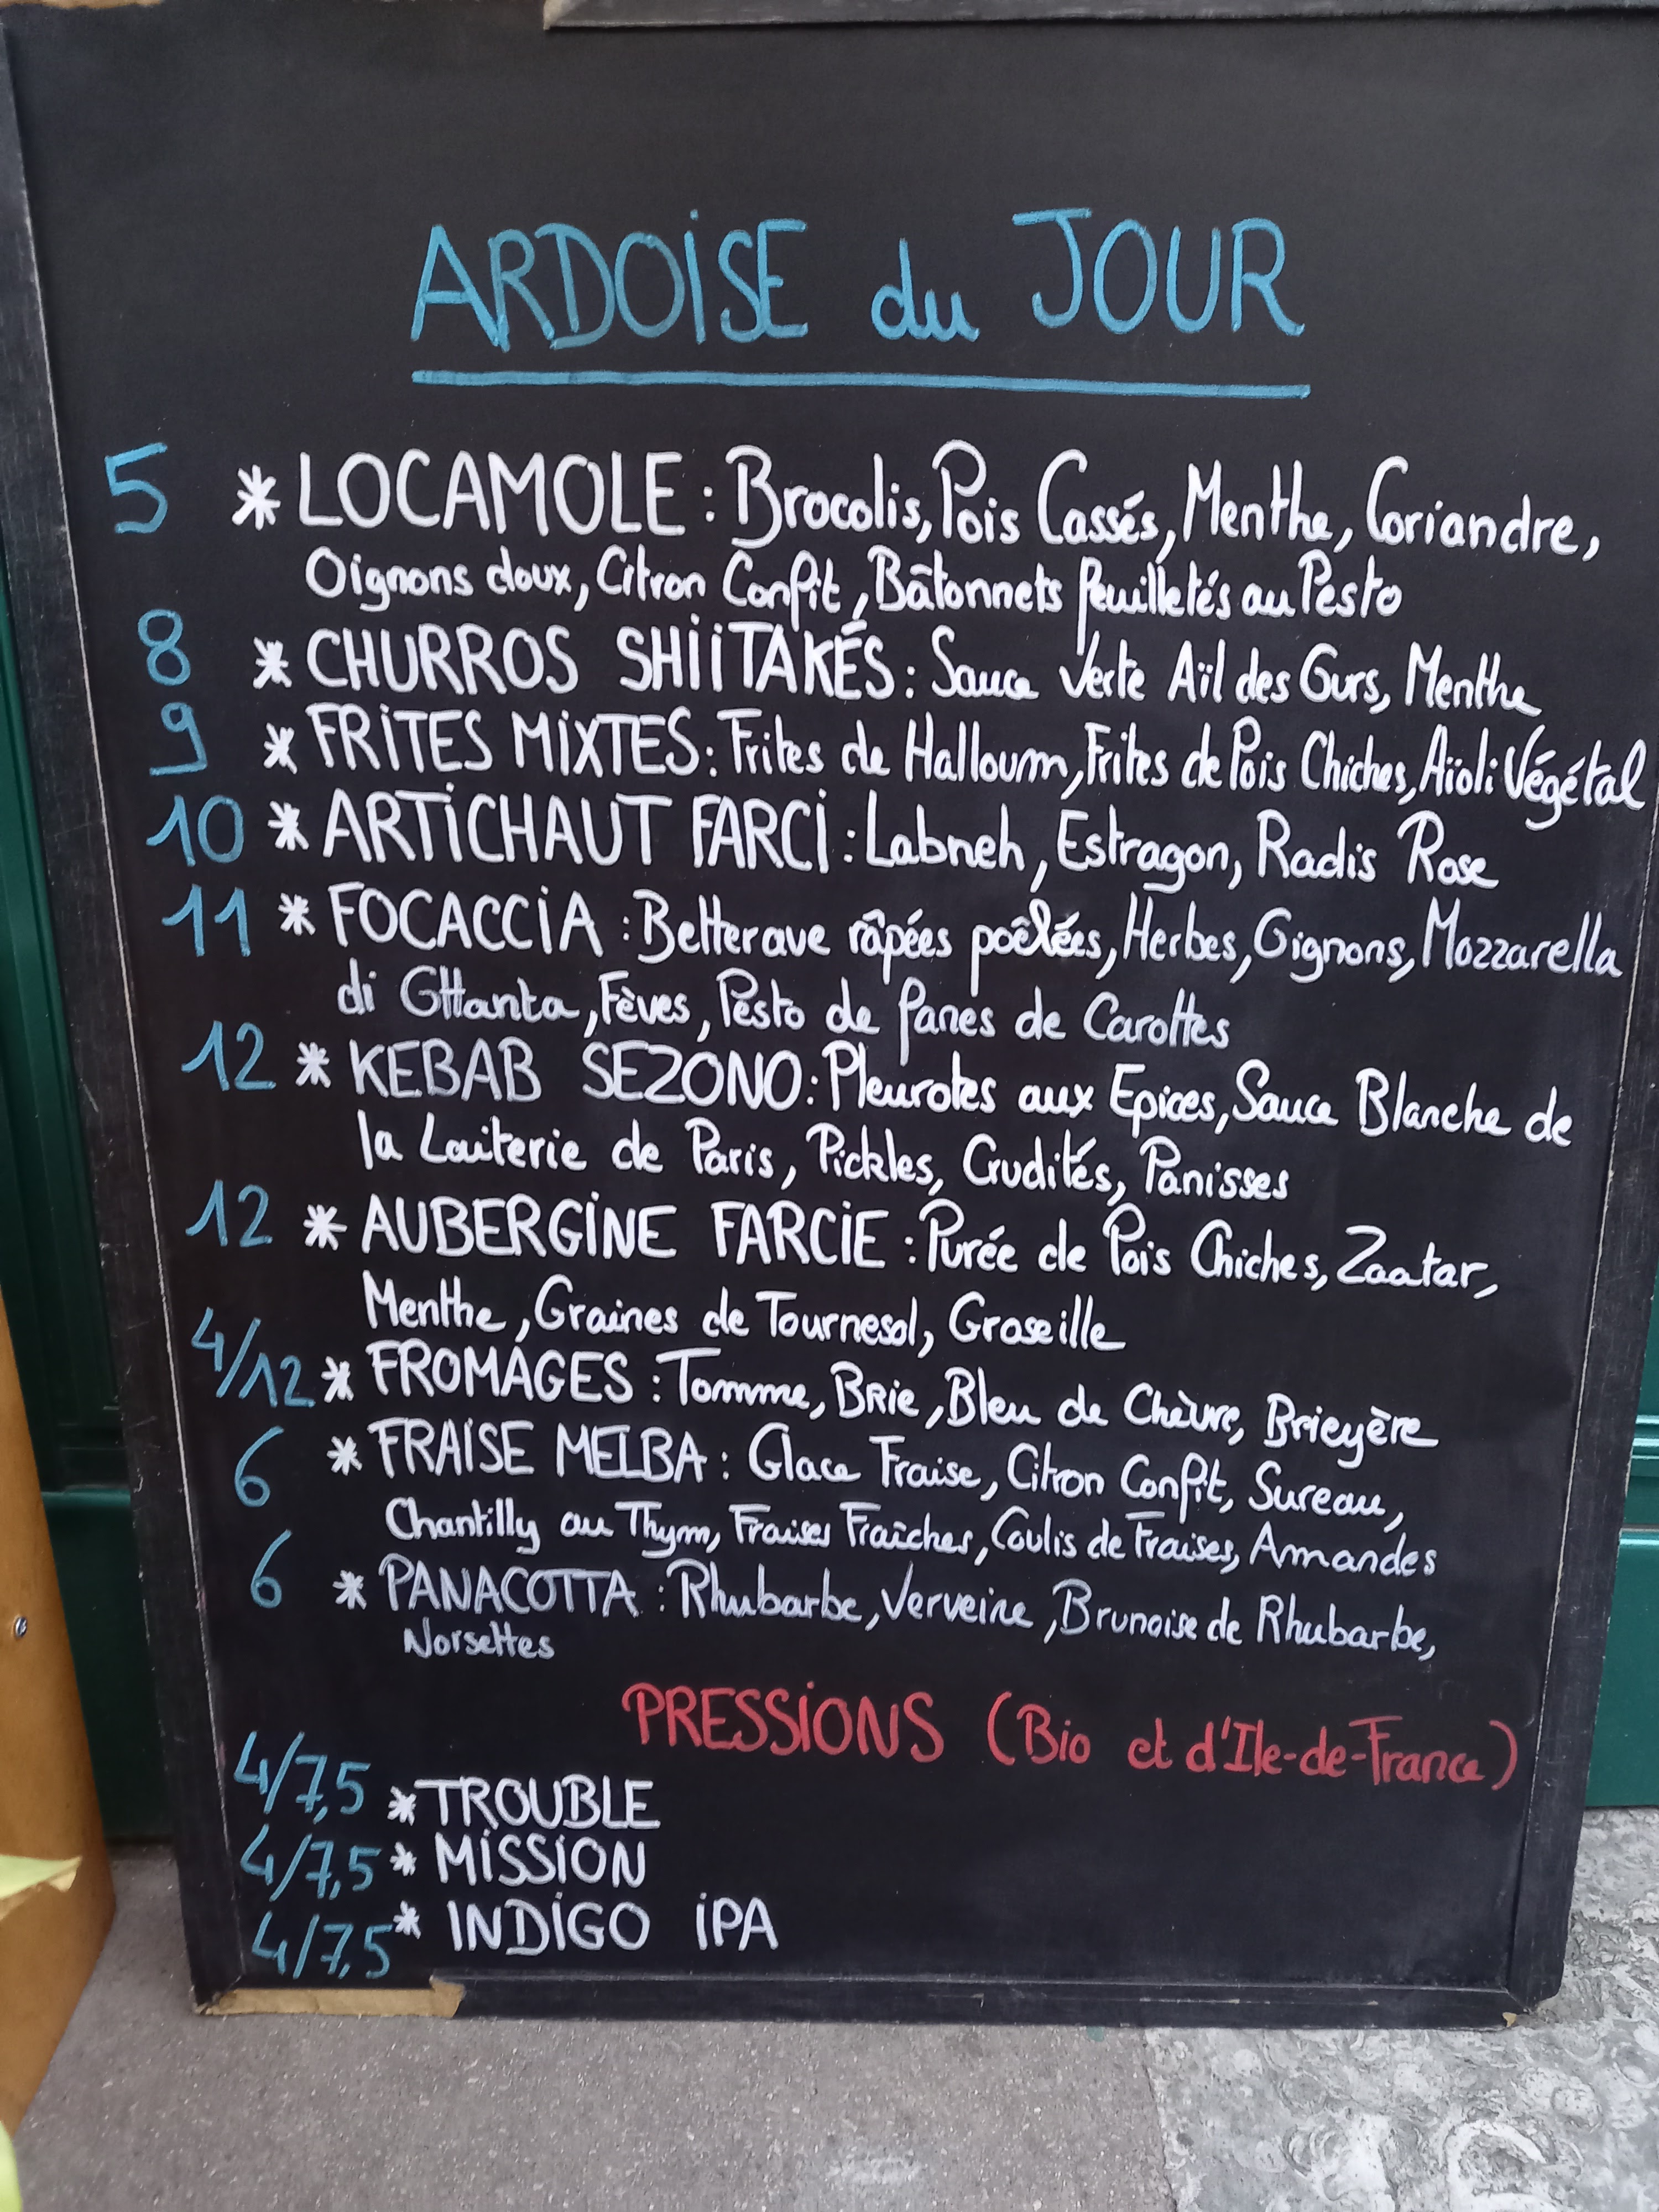 ARDOISE du JOUR
5 * LOCAMOLE : Brocolis, Pois Cassés, Menthe, Coriandre,
Oignons doux, Citron Confit, Bâtonnets feuilletés au Pesto
8 * CHURROS SHIITAKÉS : Sauce Verte Aïl des Ours, Menthe
9 * FRITES MIXTES : Frites de Halloum, Frites de Pois Chiches, Aïoli Végétal
10 * ARTICHAUT FARCI : Labneh, Estragon, Radis Rose
11 * FOCACCIA : Betterave râpées poêlées, Herbes, Oignons, Mozzarella
di Ottanta, Fèves, Pesto de Fanes de Carottes
12 * KEBAB SEZONO : Pleurotes aux Epices, Sauce Blanche de
la Laiterie de Paris, Pickles, Crudités, Panisses
12 * AUBERGINE FARCIE : Purée de Pois Chiches, Zaatar,
Menthe, Graines de Tournesol, Groseille
4/12 * FROMAGES : Tomme, Brie, Bleu de Chèvre, Brieyère
6 * FRAISE MELBA : Glace Fraise, Citron Confit, Sureau,
Chantilly au Thym, Fraises Fraîches, Coulis de Fraises, Amandes
6 * PANACOTTA : Rhubarbe, Verveine, Brunoise de Rhubarbe,
Noisettes
PRESSIONS (Bio et d'Ile-de-France)
4/7,5 * TROUBLE
4/7,5 * MISSION
4/7,5 * INDIGO IPA